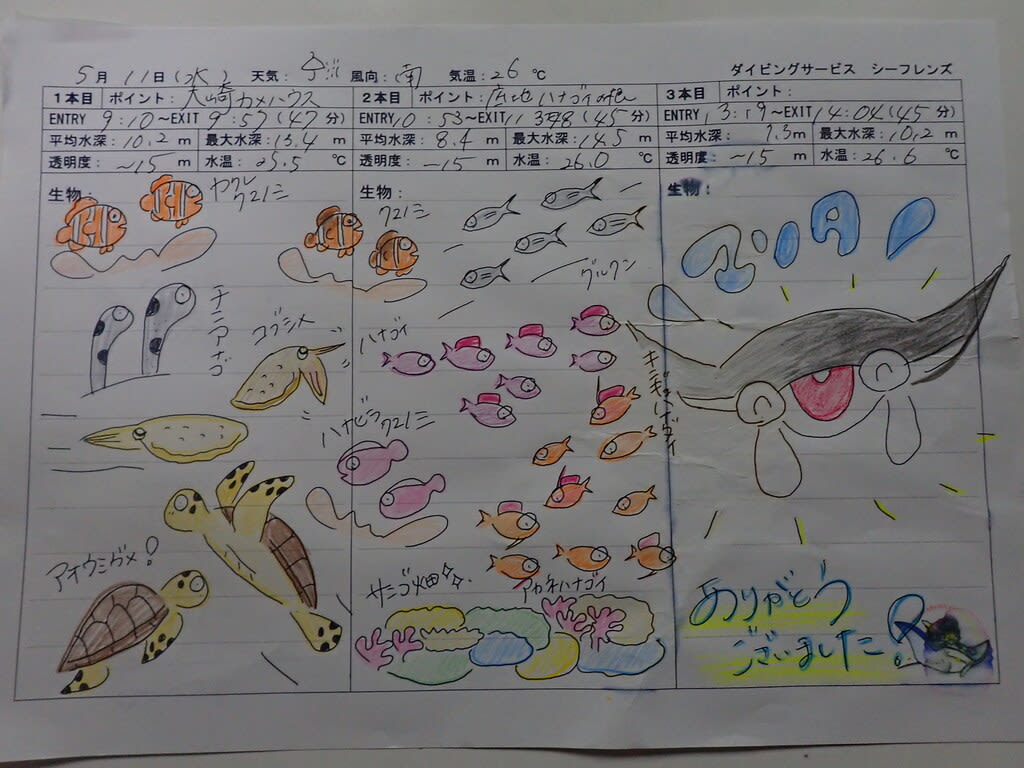 5月 11日(水) 天気: 風向:南 気温:26℃ ダイビングサービス シーフレンズ
1本目 ポイント:大崎カメハウス
ENTRY 9:10~EXIT 9:57(47分)
平均水深:10.2m 最大水深:13.4m
透明度:~15m 水温:25.5℃
生物:
ヤクシ
クマノミ
チンアナゴ
コブシメ
アオウミガメ!
2本目 ポイント:広地ハナゴイの根
ENTRY10:53~EXIT11:38(45分)
平均水深:8.4m 最大水深:14.5m
透明度:~15m 水温:26.0℃
生物:
クマノミ
グルクン
ハナゴイ
ハナビラクマノミ
キンギョハナゴイ
サンゴ畑
アカネハナゴイ
3本目 ポイント:
ENTRY13:19~EXIT14:04(45分)
平均水深:7.3m 最大水深:10.2m
透明度:~15m 水温:26.6℃
生物:
マンタ!
ありがとう
ございました